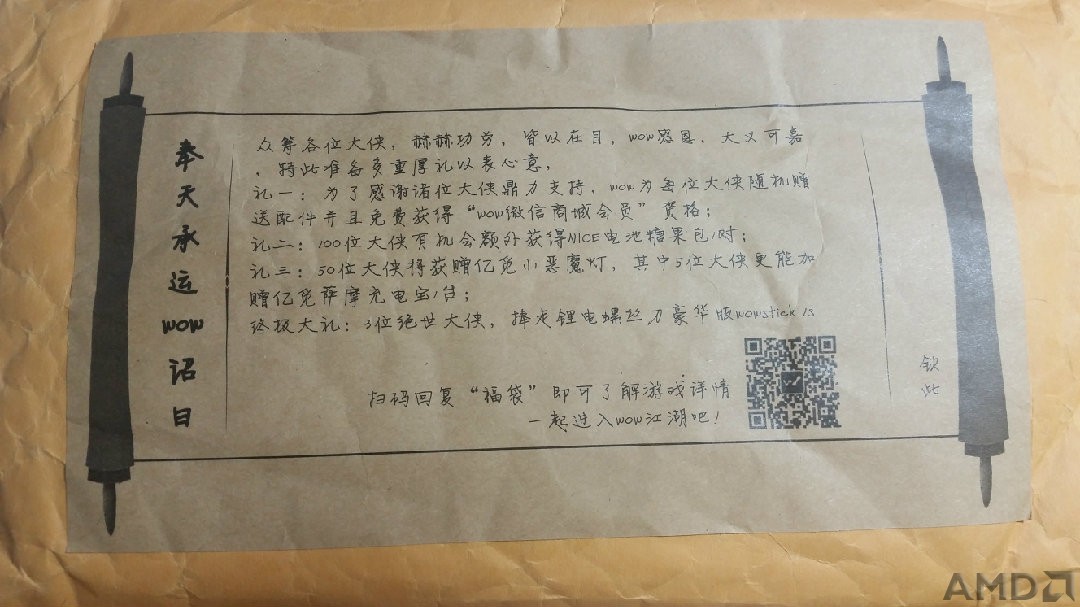 奉天承运wow诏曰
众筹各位大侠，赫赫功劳，皆以在目，wow感恩，大义可嘉
，特此准备多重厚礼以表心意，
礼一：为了感谢诸位大侠鼎力支持，wow为每位大侠随机赠
送配件并且免费获得“wow微信商城会员”资格；
礼二：100位大侠有机会额外获得NICE电池糖果包1对；
礼三：50位大侠将获赠亿觅小恶魔灯，其中5位大侠更能加
赠亿觅萨摩充电宝1台；
终极大礼：3位绝世大侠，捧走锂电螺丝刀豪华版wowstick 1s
扫码回复“福袋”即可了解游戏详情
一起进入wow江湖吧！
钦此
AMD